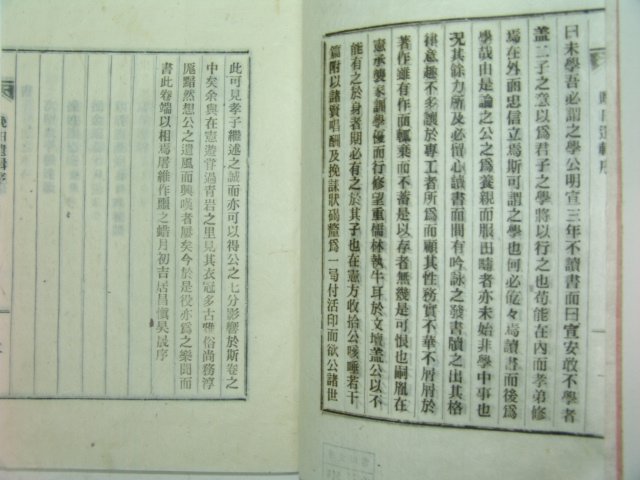 曰未學吾必謂之學公明宣三年不讀書而曰宣安敢不學者
蓋二子之意以爲君子之學將以行之也苟能在內而孝弟修
焉在外而忠信立焉斯可謂之學也何必矻々焉讀書而後爲
學哉由是論之公之爲養親而服田疇者亦未始非學中事也
況其餘力所及必留心讀書而間有吟詠之發書牘之出其格
律意趣不多讓於專工者所爲而顧其性務實不華不屑屑於
著作雖有作而輒棄而不蓄是以存者無幾是可恨也嗣胤在
憲承襲家訓學優而行修望重儒林執牛耳於文壇蓋公以不
能有之於身者期必有之於其子也在憲方收拾公咳唾若干
篇附以諸賢唱酬及挽誄狀碣釐爲一局付活印而欲公諸世
此可見孝子繼述之誠而亦可以得公之七分影響於斯卷之
中矣余與在憲遊嘗過靑岩之里見其衣冠多古雅俗尚務淳
厖黯然想公之遺風而興嘆者屢矣今於是役亦爲之樂聞而
書此卷端以相焉屠維作噩之蜡月初吉居昌愼昊晟序